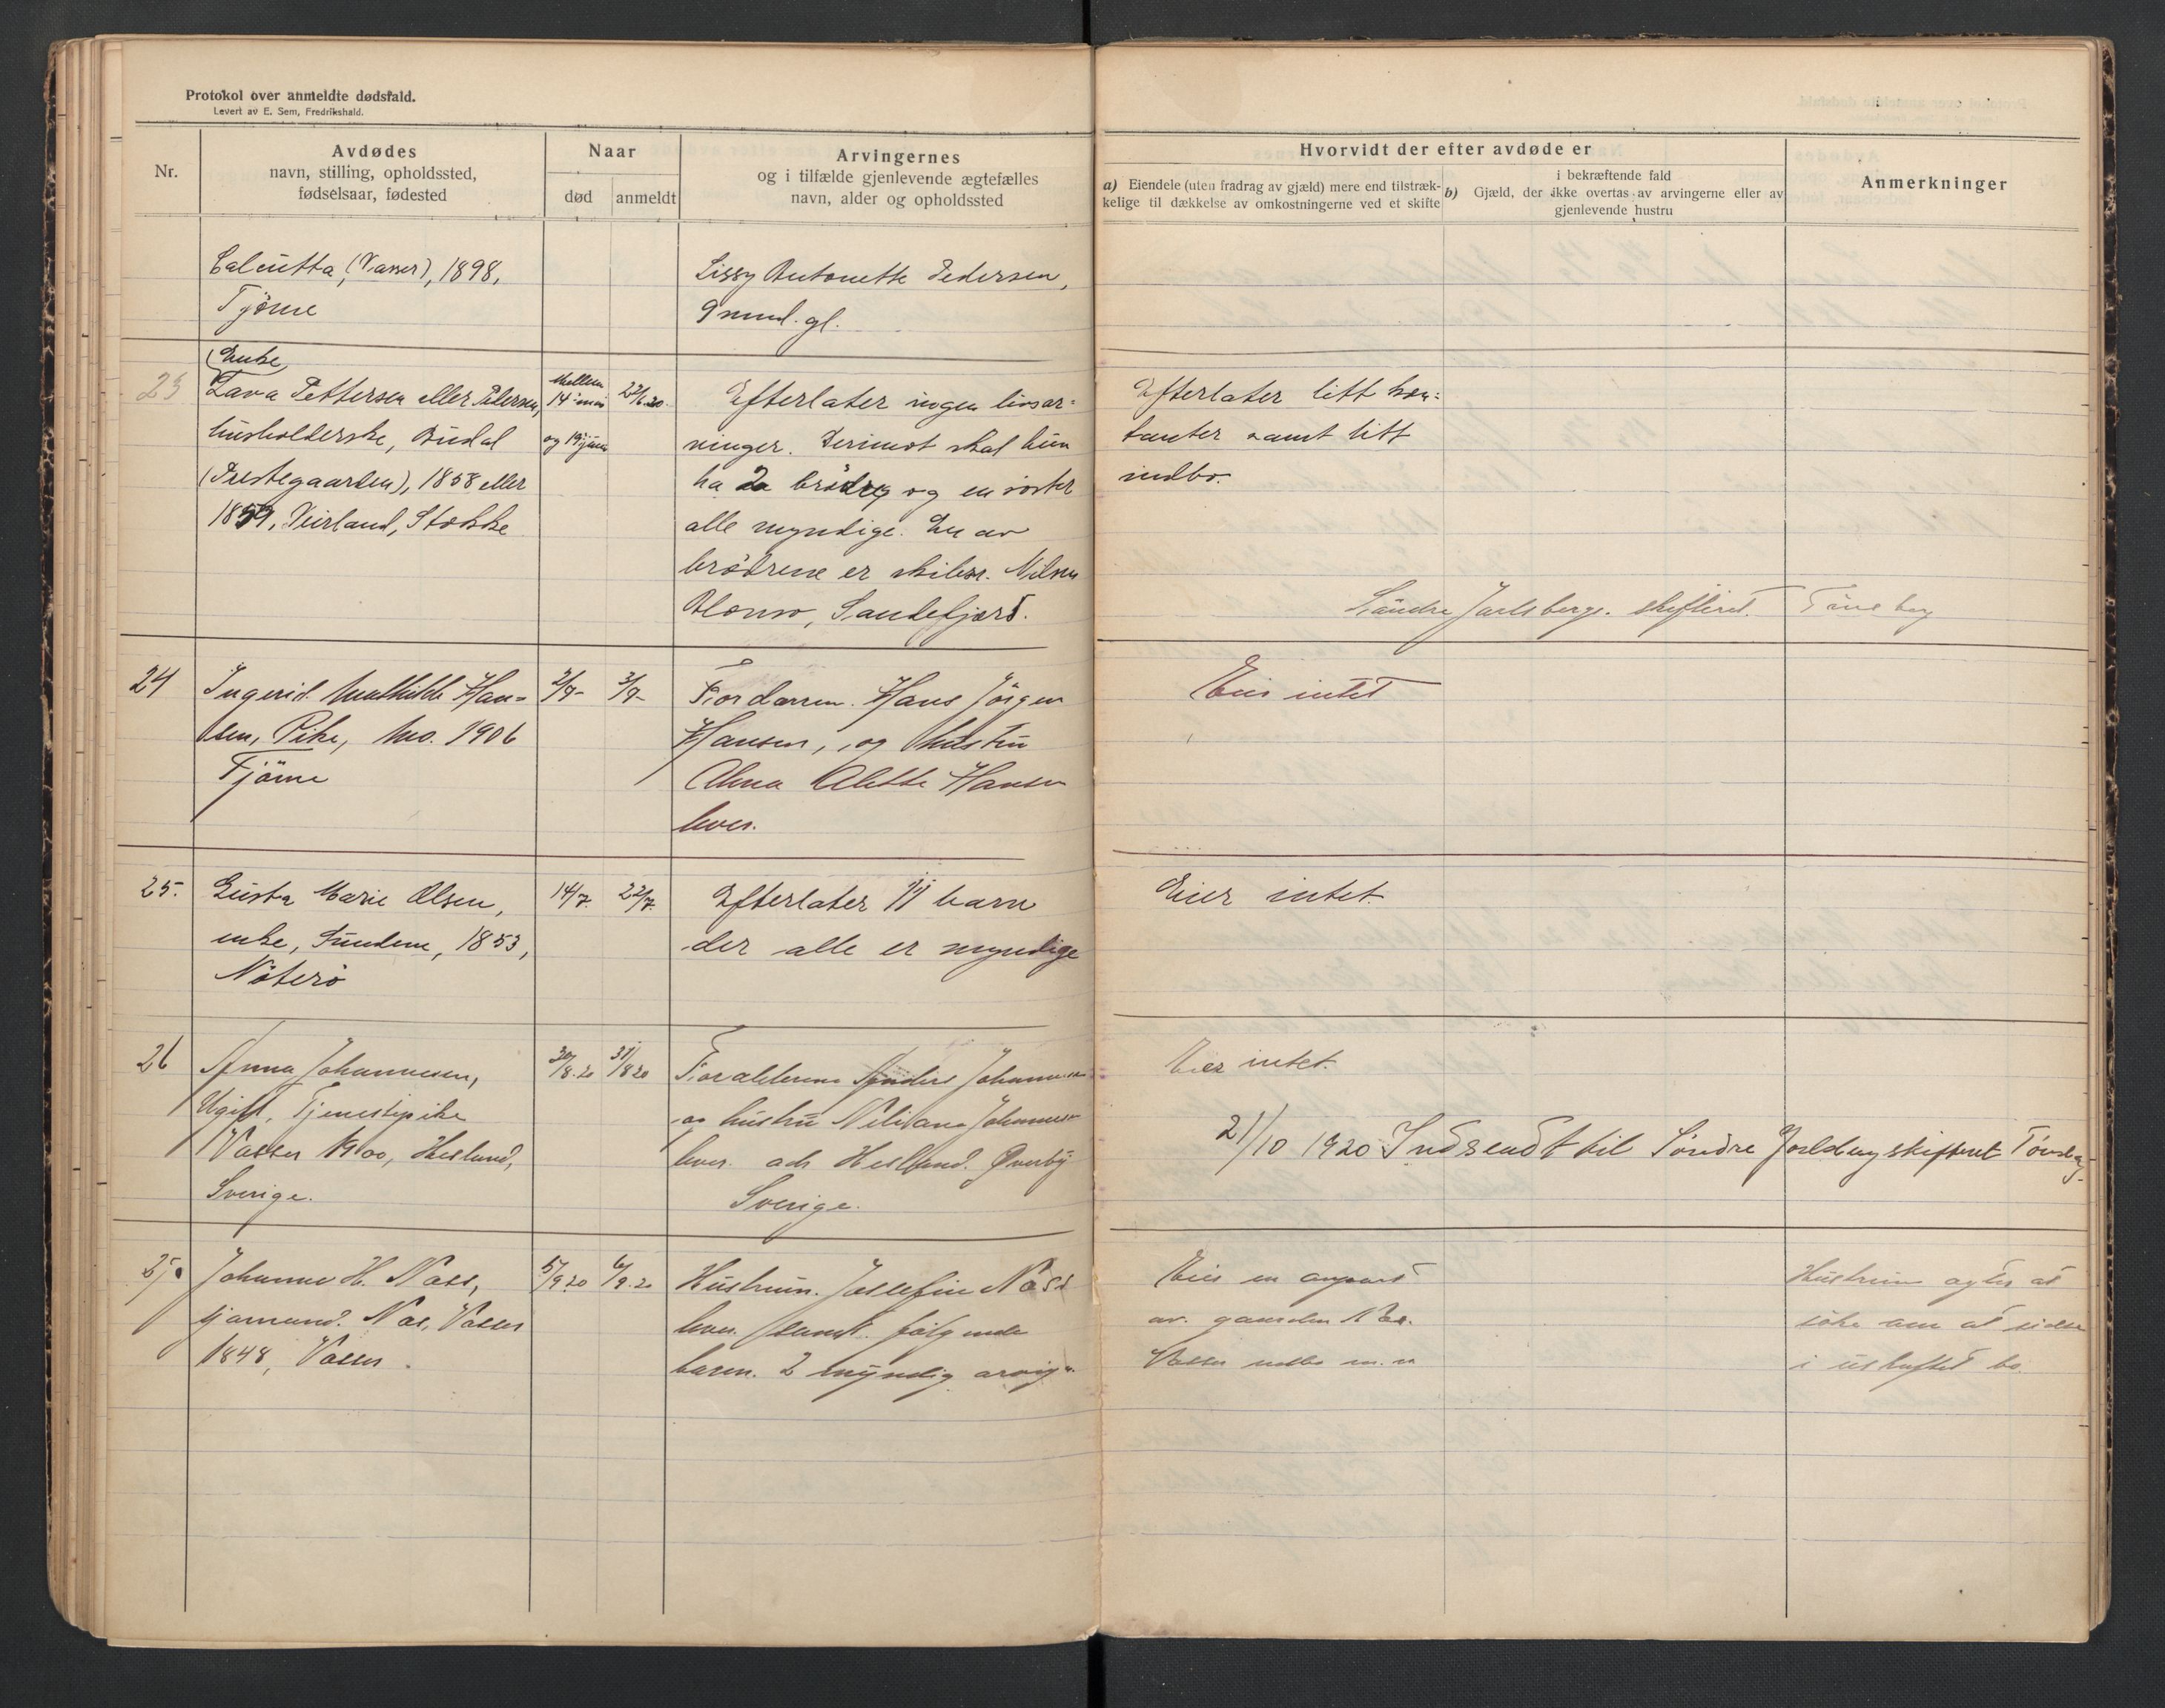 Protokol over anmeldte dødsfald.
Levert av E. Sem, Fredrikshald.
Nr.
Avdødes
navn, stilling, opholdssted,
fødselsaar, fødested
Naar
død
anmeldt
Arvingernes
og i tilfælde gjenlevende ægtefælles
navn, alder og opholdssted
Hvorvidt der efter avdøde er
a) Eiendele (uten fradrag av gjæld) mere end tilstræk-
kelige til dækkelse av omkostningerne ved et skifte
i bekræftende fald
b) Gjæld, der ikke overtas av arvingerne eller av
gjenlevende hustru
Anmerkninger
Calcutta, (Vasser), 1898,
Tjøme
Lissy Antonette Pedersen,
9 mnd. gl.
23
Enke
Lava Pettersen eller Pedersen,
husholderske, Budal
(Prestegaarden), 1858 eller
1859, Veirland, Stokke
Mellem
14 mai
og 19 juni
22/6.20.
Efterlater ingen livsar-
vinger. Derimot skal hun
ha 2 brødre og en søster
alle myndige. En av
brødrene er skibsr. Nilsen
Alonso, Sandefjord.
Efterlater litt kon-
tanter samt litt
indbo.
Søndre Jarlsberg. skifteret. Tønsberg
24
Ingerid Mathilde Han-
sen, Pike, Mo. 1906
Tjøme
2/7-
3/7-
Forældrene. Hans Jørgen
Hansen, og hustru
Alma Alette Hansen
lever.
Eier intet
25.
Gusta Marie Olsen,
enke, Sundene, 1853,
Nøterø
14/7.
22/7.
Efterlater 11 barn
der alle er myndige
Eier intet
26
Anna Johannesen,
Ugift, Tjenestepike
Vasser 1900, Heslund,
Sverige.
30/8.20
31/8 20
Forældrene Anders Johannesen
og hustru Johannesen
lever. adr Heslund. Qverby
Sverige.
Eier intet.
21/10 1920 Indsendt til Søndre Jarlsberg skifteret Tønsberg.
27
Johanne H. Næss,
gaardmand. Næs, Vasser
1848, Vasser.
5/9 20
6/9.20
Hustruen. Josefine Næss
lever samt følgende
barn. 2 myndig
Eier en anpart
av. gaarden Næs.
Vasser indbo m. m
Hustruen agter at
søke om at sidde
i uskiftet bo.